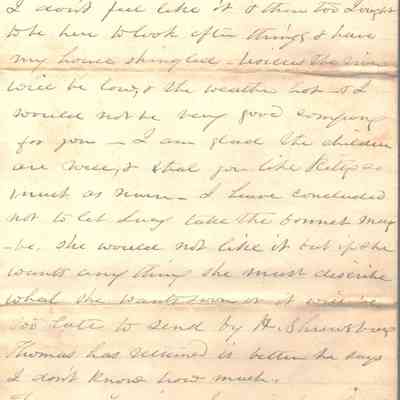 I don't feel like it & then too I ought
to be here to look after things & have
my house shingled - besides the river
will be low, & the weather hot - & I
would not be very good company
for you - I am glad the children
are well, & that you like so
much as nurse - I have concluded
not to let Lucy take the bonnet may
-be, she would not like it but if she
wants any thing she must describe
what she wants soon or it will be
too late to send by H. Shrewsbury
Thomas has returned is better he says
I don't know how much.